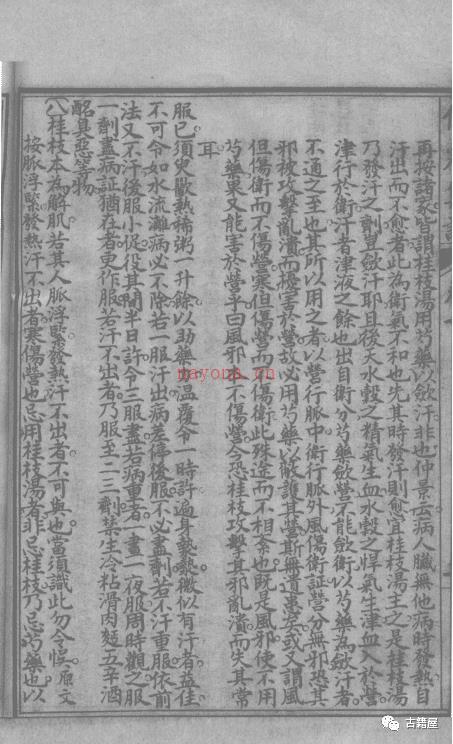 再按諸家皆謂桂枝湯用芍藥以斂汗非也仲景云病人臟無他病時發熱自
汗出而不愈者此為衛氣不和也先其時發汗則愈宜桂枝湯主之是桂枝湯
乃發汗之劑豈斂汗耶且後天水穀之精氣生血水穀之悍氣生津血入於營
津行於衛汗者津液之餘也出自衛分芍藥斂營不能斂衛以芍藥為斂汗者
不通之至也其所以用之者以營行脈中衛行脈外風傷衛証營分無邪恐其
邪被攻擊亂潰而擾害於營故必用芍藥以斂護其營斯無遺害矣或又謂風
但傷衛而不傷營寒但傷營而不傷衛此殊途而不相紊也既是風邪便不用
芍藥東又能害於營乎曰風邪不傷營今恐桂枝攻擊其邪亂潰而失其常
耳
服已須臾歠熱稀粥一升餘以助藥力温覆令一時許遍身漐漐微似有汗者益佳
不可令如水流漓病必不除若一服汗出病差停後服不必盡劑若不汗重服依前
法又不汗後服小促役其間半日許令三服盡若病重者一晝一夜服周時觀之服
一劑盡病証猶在者更作服若汗不出者乃服至二三劑禁生冷粘滑肉麵五辛酒
酪臭惡等物
八桂枝本為解肌若其人脈浮緊發熱汗不出者不可與也當須識此勿令悞原文
按脈浮緊發熱汗不出者寒傷營也忌用桂枝湯者非忌桂枝乃忌芍藥也以
nayona.cn
古籍屋